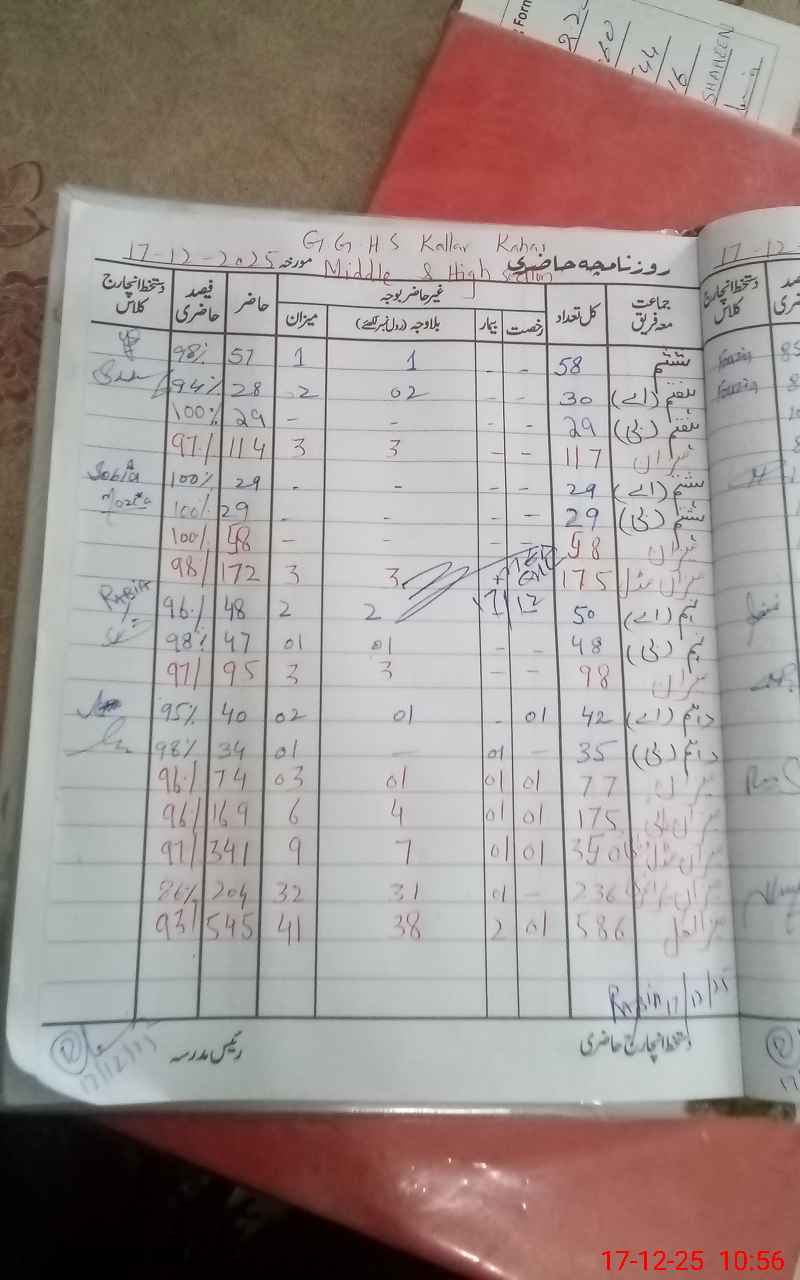 : Form
SHAHEEN
G G H S Kallar Kahar
روزنامچہ حاضری Middle & High Section مورخہ 17-12-2025
جماعت معہ فریق کل تعداد غیر حاضر بوجہ حاضر فیصد حاضری دستخط انچارج کلاس
رخصت بیمار بلاوجہ (رول نمبر لکھئے) میزان
ششم 58 - - 1 1 57 98%
ہفتم (اے) 30 - - 02 2 28 94%
ہفتم (بی) 29 - - - - 29 100%
میزان 117 - - 3 3 114 97%
ہشتم (اے) 29 - - - - 29 100% Sobia
ہشتم (بی) 29 - - - - 29 100% Mozia
میزان 58 - - - - 58 100%
میزان مڈل 175 3 3 172 98%
نہم (اے) 50 2 2 48 96% RABIA
17/12
نہم (بی) 48 - - 01 01 47 98%
میزان 98 - - 3 3 95 97%
دہم (اے) 42 01 - 01 02 40 95%
دہم (بی) 35 - 01 - 01 34 98%
میزان 77 01 01 01 03 74 96%
میزان ہائی 175 01 01 4 6 169 96%
میزان مڈل 350 01 01 7 9 341 97%
میزان 236 - 01 31 32 204 86%
میزان کل 586 01 2 38 41 545 93%
Rabia 17/12/25
دستخط انچارج حاضری رئیس مدرسہ
17/12/25
17-12-
دستخط انچارج کلاس
Fouzia
Fouzia
17-12-25 10:56